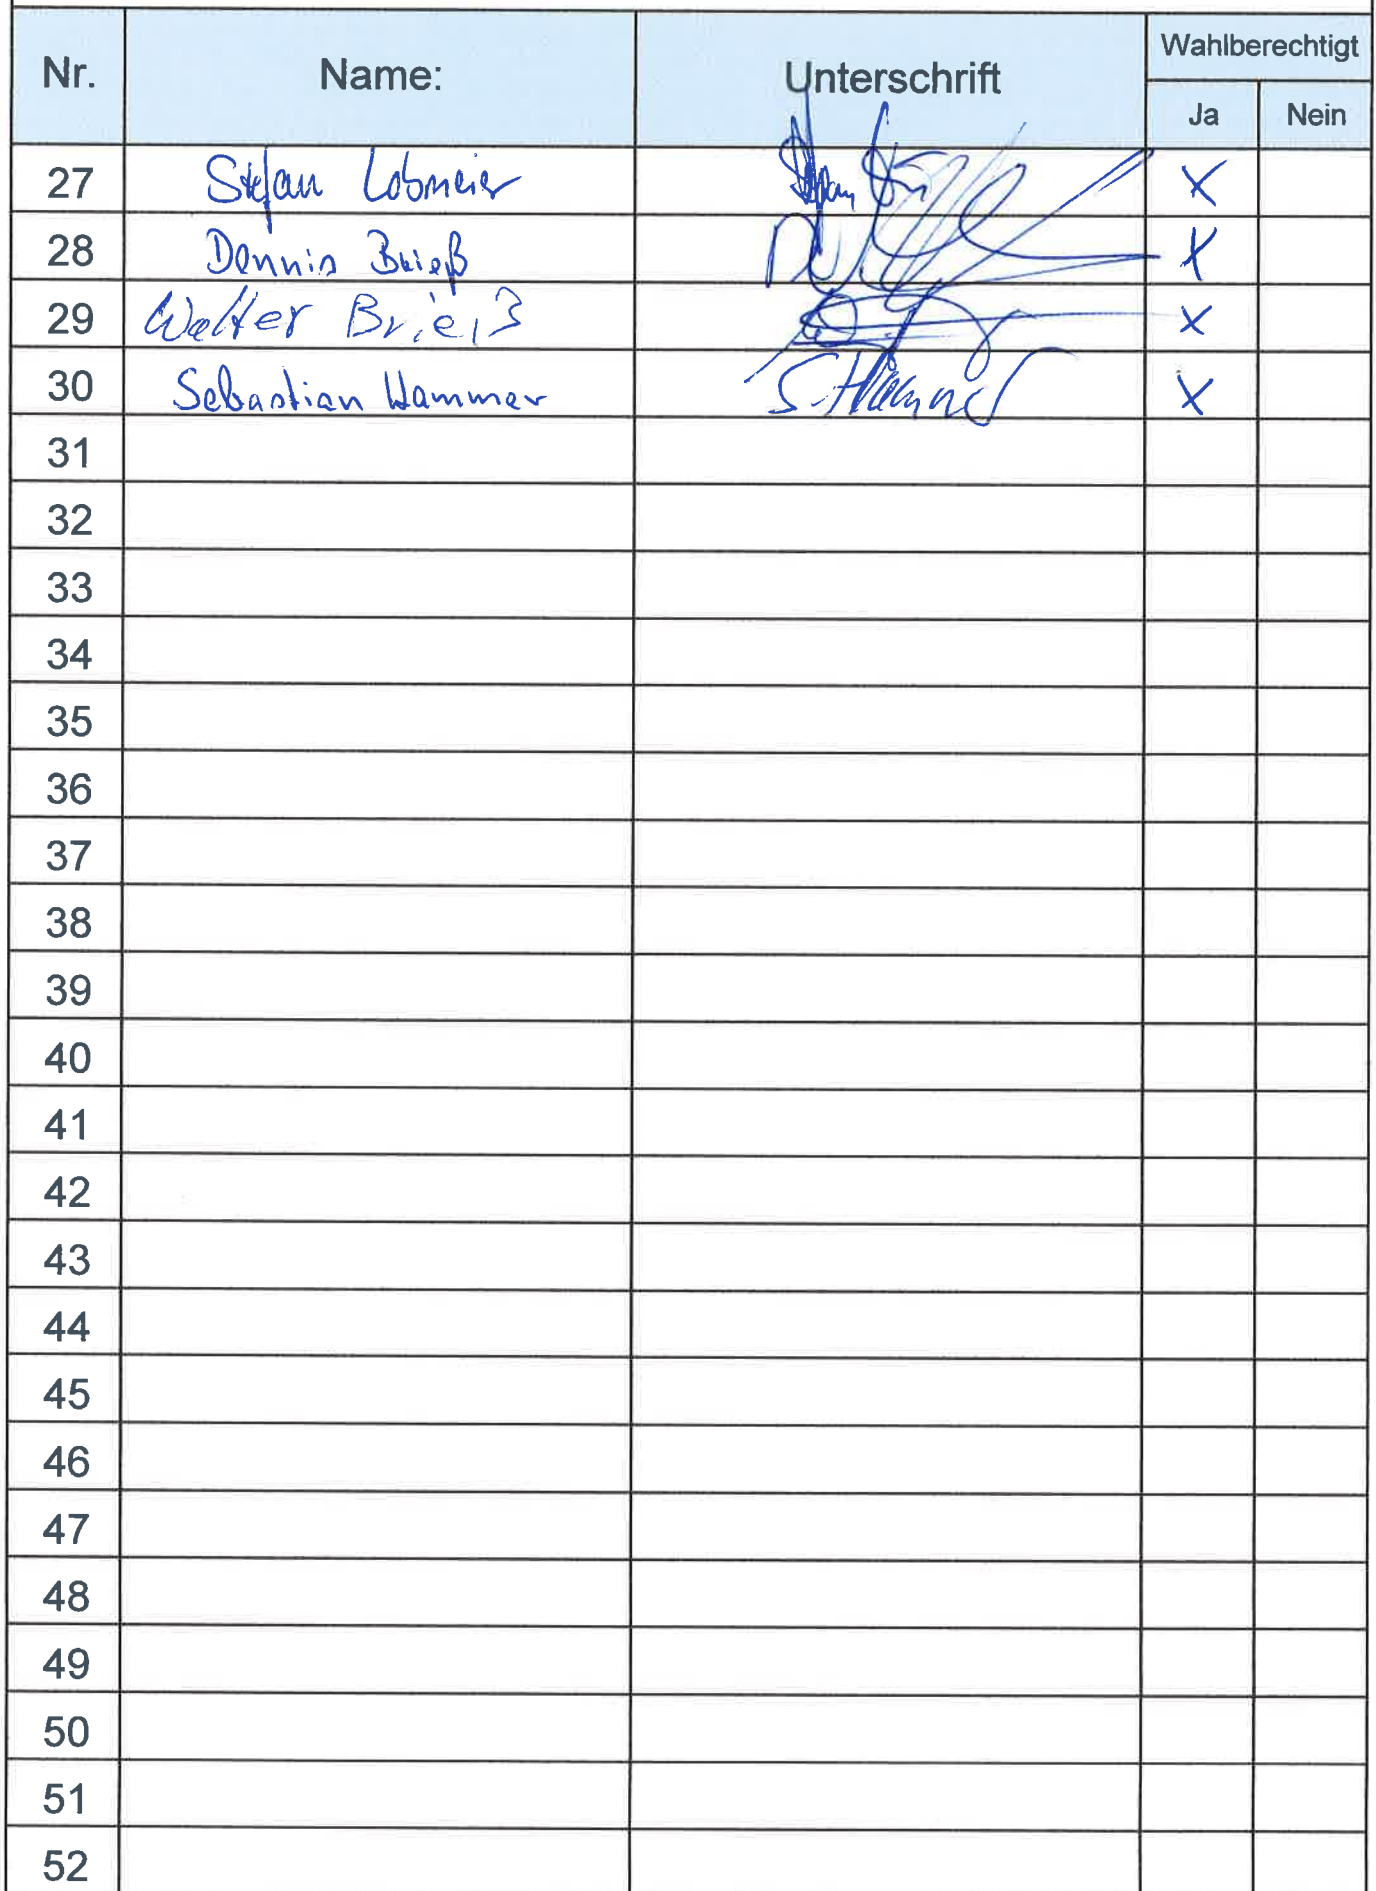 Nr. Name: Unterschrift Wahlberechtigt
Ja Nein
27 Stefan Lobmeier
28 Dennis Brieß X
29 Walter Brieiß X
30 Sebastian Hammer S. Hammer X
31
32
33
34
35
36
37
38
39
40
41
42
43
44
45
46
47
48
49
50
51
52